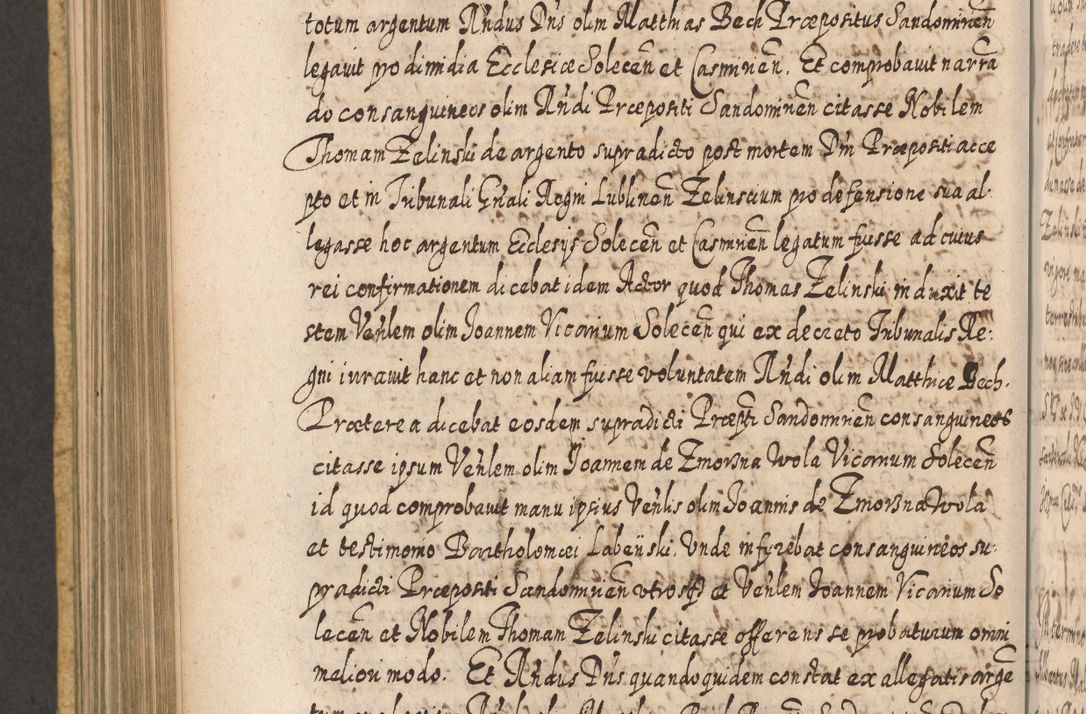 totum argentum Rńdus Dńs olim Matthias Bech Præpositus Sandomirień
legauit pro dimidia Ecclesiæ Soleceń et Casmineń. Et comprobauit narrā
do consanguineos olim Rńdi Præpositi Sandomireń citasse Nobilem
Thomam Zelinski de argento supradicto post mortem Dńi Præpositi acce
pto et in Tribunali Gńali Regni Lublineń Zelinscium pro defensione sua al-
legasse hoc argentum Ecclesijs Soleceń et Casmireń legatum fuisse ad cuius
rei confirmationem dicebat idem Actor quod Thomas Zelinski induxit te
stem Veńlem olim Joannem Vicarium Soleceń qui ex decreto Tribunalis Re-
gni iurauit hanc et non aliam fuisse voluntatem Rńdi olim Matthiæ Bech.
Præterea dicebat eosdem supradicti Præpti Sandomirień consanguineos
citasse ipsum Veńlem olim Joannem de Zmorzna Wola Vicarium Soleceń
id quod comprobauit manu ipsius Veńlis olim Joannis de Zmorzna Wola
et testimonio Bartholomei Labęński. Unde inferebat consanguineos su-
pradicti Præpositi Sandomirień utrosq3 et Veńlem Joannem Vicarium So
leceń et Nobilem Thomam Zelinski citasse offerens se probaturum omni
meliori modo. Et Rńdus Dńs quandoquidem constat ex allegatis argē